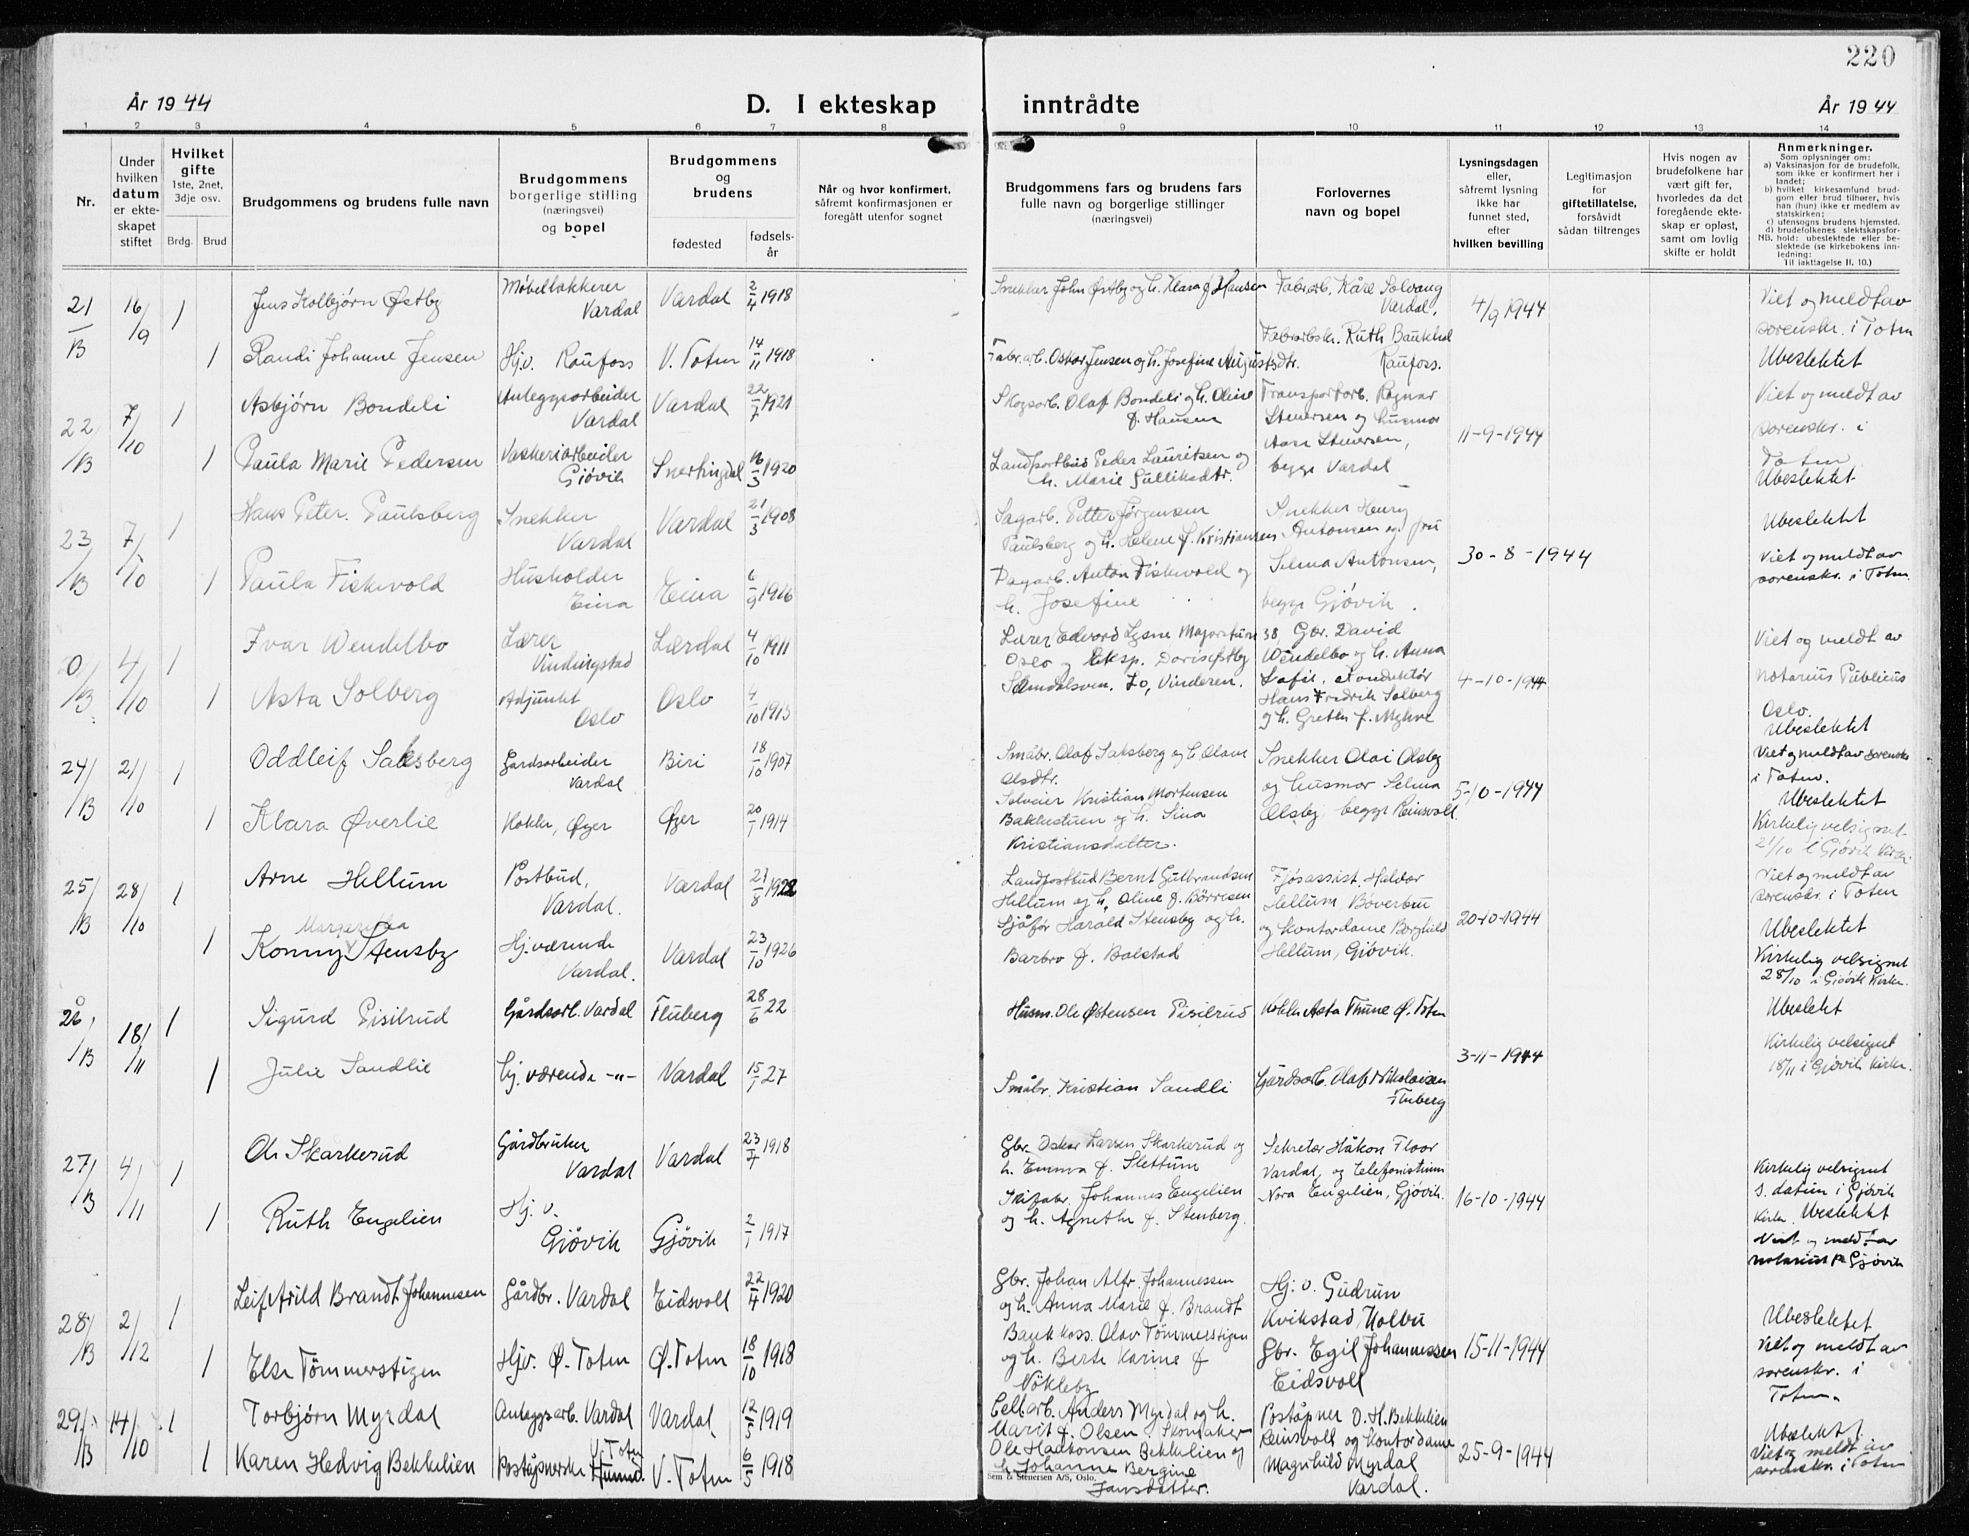 220
År 1944
D. I ekteskap inntrådte
År 1944
1 2 3 4 5 6 7 8 9 10 11 12 13 14
Nr.
Under hvilken datum er ekteskapet stiftet
Hvilket gifte
1ste, 2net, 3dje osv.
Brdg. Brud
Brudgommens og brudens fulle navn
Brudgommens borgerlige stilling (næringsvei) og bopel
Brudgommens og brudens
fødested
fødselsår
Når og hvor konfirmert, såfremt konfirmasjonen er foregått utenfor sognet
Brudgommens fars og brudens fars fulle navn og borgerlige stillinger (næringsvei)
Forlovernes navn og bopel
Lysningsdagen eller, såfremt lysning ikke har funnet sted, efter hvilken bevilling
Legitimasjon for giftetillatelse, forsåvidt sådan tiltrenges
Hvis nogen av brudefolkene har vært gift før, hvorledes da det foregående ekteskap er opløst, samt om lovlig skifte er holdt
Anmerkninger.
Som oplysninger om:
a) Vaksinasjon for de brudefolk, som ikke er konfirmert her i landet;
b) hvilket kirkesamfund brudgom eller brud tilhører, hvis han (hun) ikke er medlem av statskirken;
c) utensogns brudens hjemsted.
d) brudefolkenes slektskapsforhold: ubeslektede eller beslektede (se kirkebokens innledning:
NB.
Til iakttagelse II. 10.)
21/B 16/9 1 Jens Kolbjørn Østby Møbellakkerer Vardal Vardal 2/4 1918 Snekker John Østby og h. Klara f. Hansen Fabrarb. Kåre Solvang Vardal, 4/9 1944 Viet og meldt av sorenskr. i Toten
1 Randi Johanne Jensen Hj.v. Raufoss V. Toten 14/11 1918 Fabr.arb. Oskar Jensen og h. Josefine Augustsdtr. Fabrarbsk. Ruth Raufoss. Ubeslektet
22/B 7/10 1 Asbjørn Bondeli Anleggsarbeider Vardal Vardal 22/7 1921 Skogsarb. Olaf Bondeli og h. Oline f. Hansen Transportarb. Ragnar Stenersen og husmor 11-9-1944 Viet og meldt av sorenskr. i Toten
1 Paula Marie Pedersen Vaskeriarbeider Gjøvik Snertingdal 16/3 1920 Landpostbud Peder Lauritsen og h. Marie Gulliksdtr. Aase Stenersen, begge Vardal Ubeslektet
23/B 7/10 1 Hans Peter Paulsberg Snekker Vardal Vardal 21/3 1908 Sagarb. Petter Jørgensen Paulsberg og h. Helene f. Kristiansen Snekker Henry Antonsen og fru 30-8-1944 Ubeslektet
1 Paula Fiskevold Husholder Eina Eina 6/9 1916 Dagarb. Anton Fiskevold og h. Josefine Selma Antonsen, begge Gjøvik. Viet og meldt av sorenskr. i Toten.
4/10 1 Ivar Wendelbo Lærer Vindingstad Lærdal 4/10 1911 Lærer Edvard Lysne Majorstuen 38, Oslo og Gbr. David Wendelbo og h. Anna 4-10-1944 Viet og meldt av
1 Asta Solberg Adjunkt Oslo Oslo 4/10 1913 Vinderen. Hans Fredrik Solberg og h. Grethe f. Myhre notarius Publicus Oslo. Ubeslektet
24/B 21/10 1 Oddleif Saksberg Gardsarbeider Vardal Biri 18/10 1907 Småbr. Olaf Saksberg og h. Olava Olsdtr. Snekker Olai Olsby og husmor Selma 5-10-1944 Viet og meldt av sorenskr i Toten. Ubeslektet
1 Klara Øverlie Kokke, Øyer Øyer 20/1 1914 Kristian Mortensen Bakkestuen og h. Sina Kristiansdatter. Olsby begge Reinsvoll. Kirkelig velsignet 21/10 i Gjøvik Kirke.
25/B 28/10 1 Arne Hellum Postbud, Vardal. Vardal 21/8 1922 Landpostbud Bernt Gulbrandsen Hellum og h. Oline f. Børresen Fjøsassist. Haldor Hellum Bøverbru 20-10-1944 Viet og meldt av sorenskr. i Toten
1 Konny Margaretha Stensby Hj.værende Vardal. Vardal 23/10 1926 Sjåfør Harald Stensby og h. Barbro f. Bolstad og Kontordame Borghild Hellum, Gjøvik. Ubeslektet Kirkelig velsignet 28/10 i Gjøvik Kirke.
26/B 18/11 1 Sigurd Pisilrud Gårdsarb. Vardal Fluberg 28/6 22 Husm. Ole Østensen Pisilrud Kokke Asta Thune Ø. Toten 3-11-1944 Ubeslekt
1 Julie Sandlie hj. værende -"- Vardal 15/1 27 Småbr. Kristian Sandli Gårdsarb. Olaf Nikolaisen Fluberg Kirkelig velsignet 18/11 i Gjøvik Kirke.
27/B 4/11 1 Ole Skarkerud Gårdbruker Vardal Vardal 23/7 1918 Gbr. Oskar Larsen Skarkerud og h. Emma f. Slettum Sekretær Håkon Floor Vardal, og telefonistinne 16-10-1944 Kirkelig velsignet s. datum i Gjøvik Kirke. Ubeslektet
1 Ruth Engelien Hj. v. Gjøvik Gjøvik 2/1 1917 Johannes Engelien og h. Agnethe f. Stenberg. Nora Engelien, Gjøvik. Viet og meldt av notarius P. Gjøvik
28/B 2/12 1 Leif Arild Brandt Johannesen Gårdbr. Vardal Eidsvoll 22/4 1920 Gbr. Johan Alfr. Johannessen og h. Anna Marie f. Brandt Hj. v. Gudrun Kvikstad, Kolbu 15-11-1944 Ubeslektet
1 Else Tømmerstigen Hjv. Ø. Toten Ø. Toten 18/10 1918 Bankkass. Olav Tømmerstigen og h. Berte Karine f Nøkleby Gbr. Egil Johannessen Eidsvoll Viet og meldt av sorenskr. i Toten.
29/B 14/10 1 Torbjørn Myrdal Anleggsarb. Vardal Vardal 12/5 1919 Cellarb. Anders Myrdal og h. Marit f. Olsen Poståpner O. H. Bekkelien Reinsvoll og Kontordame 25-9-1944 Ubeslekt
1 Karen Hedvig Bekkelien Poståpnerske V. Toten V. Toten 6/5 1918 Skomaker Ole Haakonsen Bekkelien og h. Johanne Bergine Jansdatter. Magnhild Myrdal Vardal. Viet og meldt av sorenskr. i Toten
Sem & Stenersen A/S, Oslo.